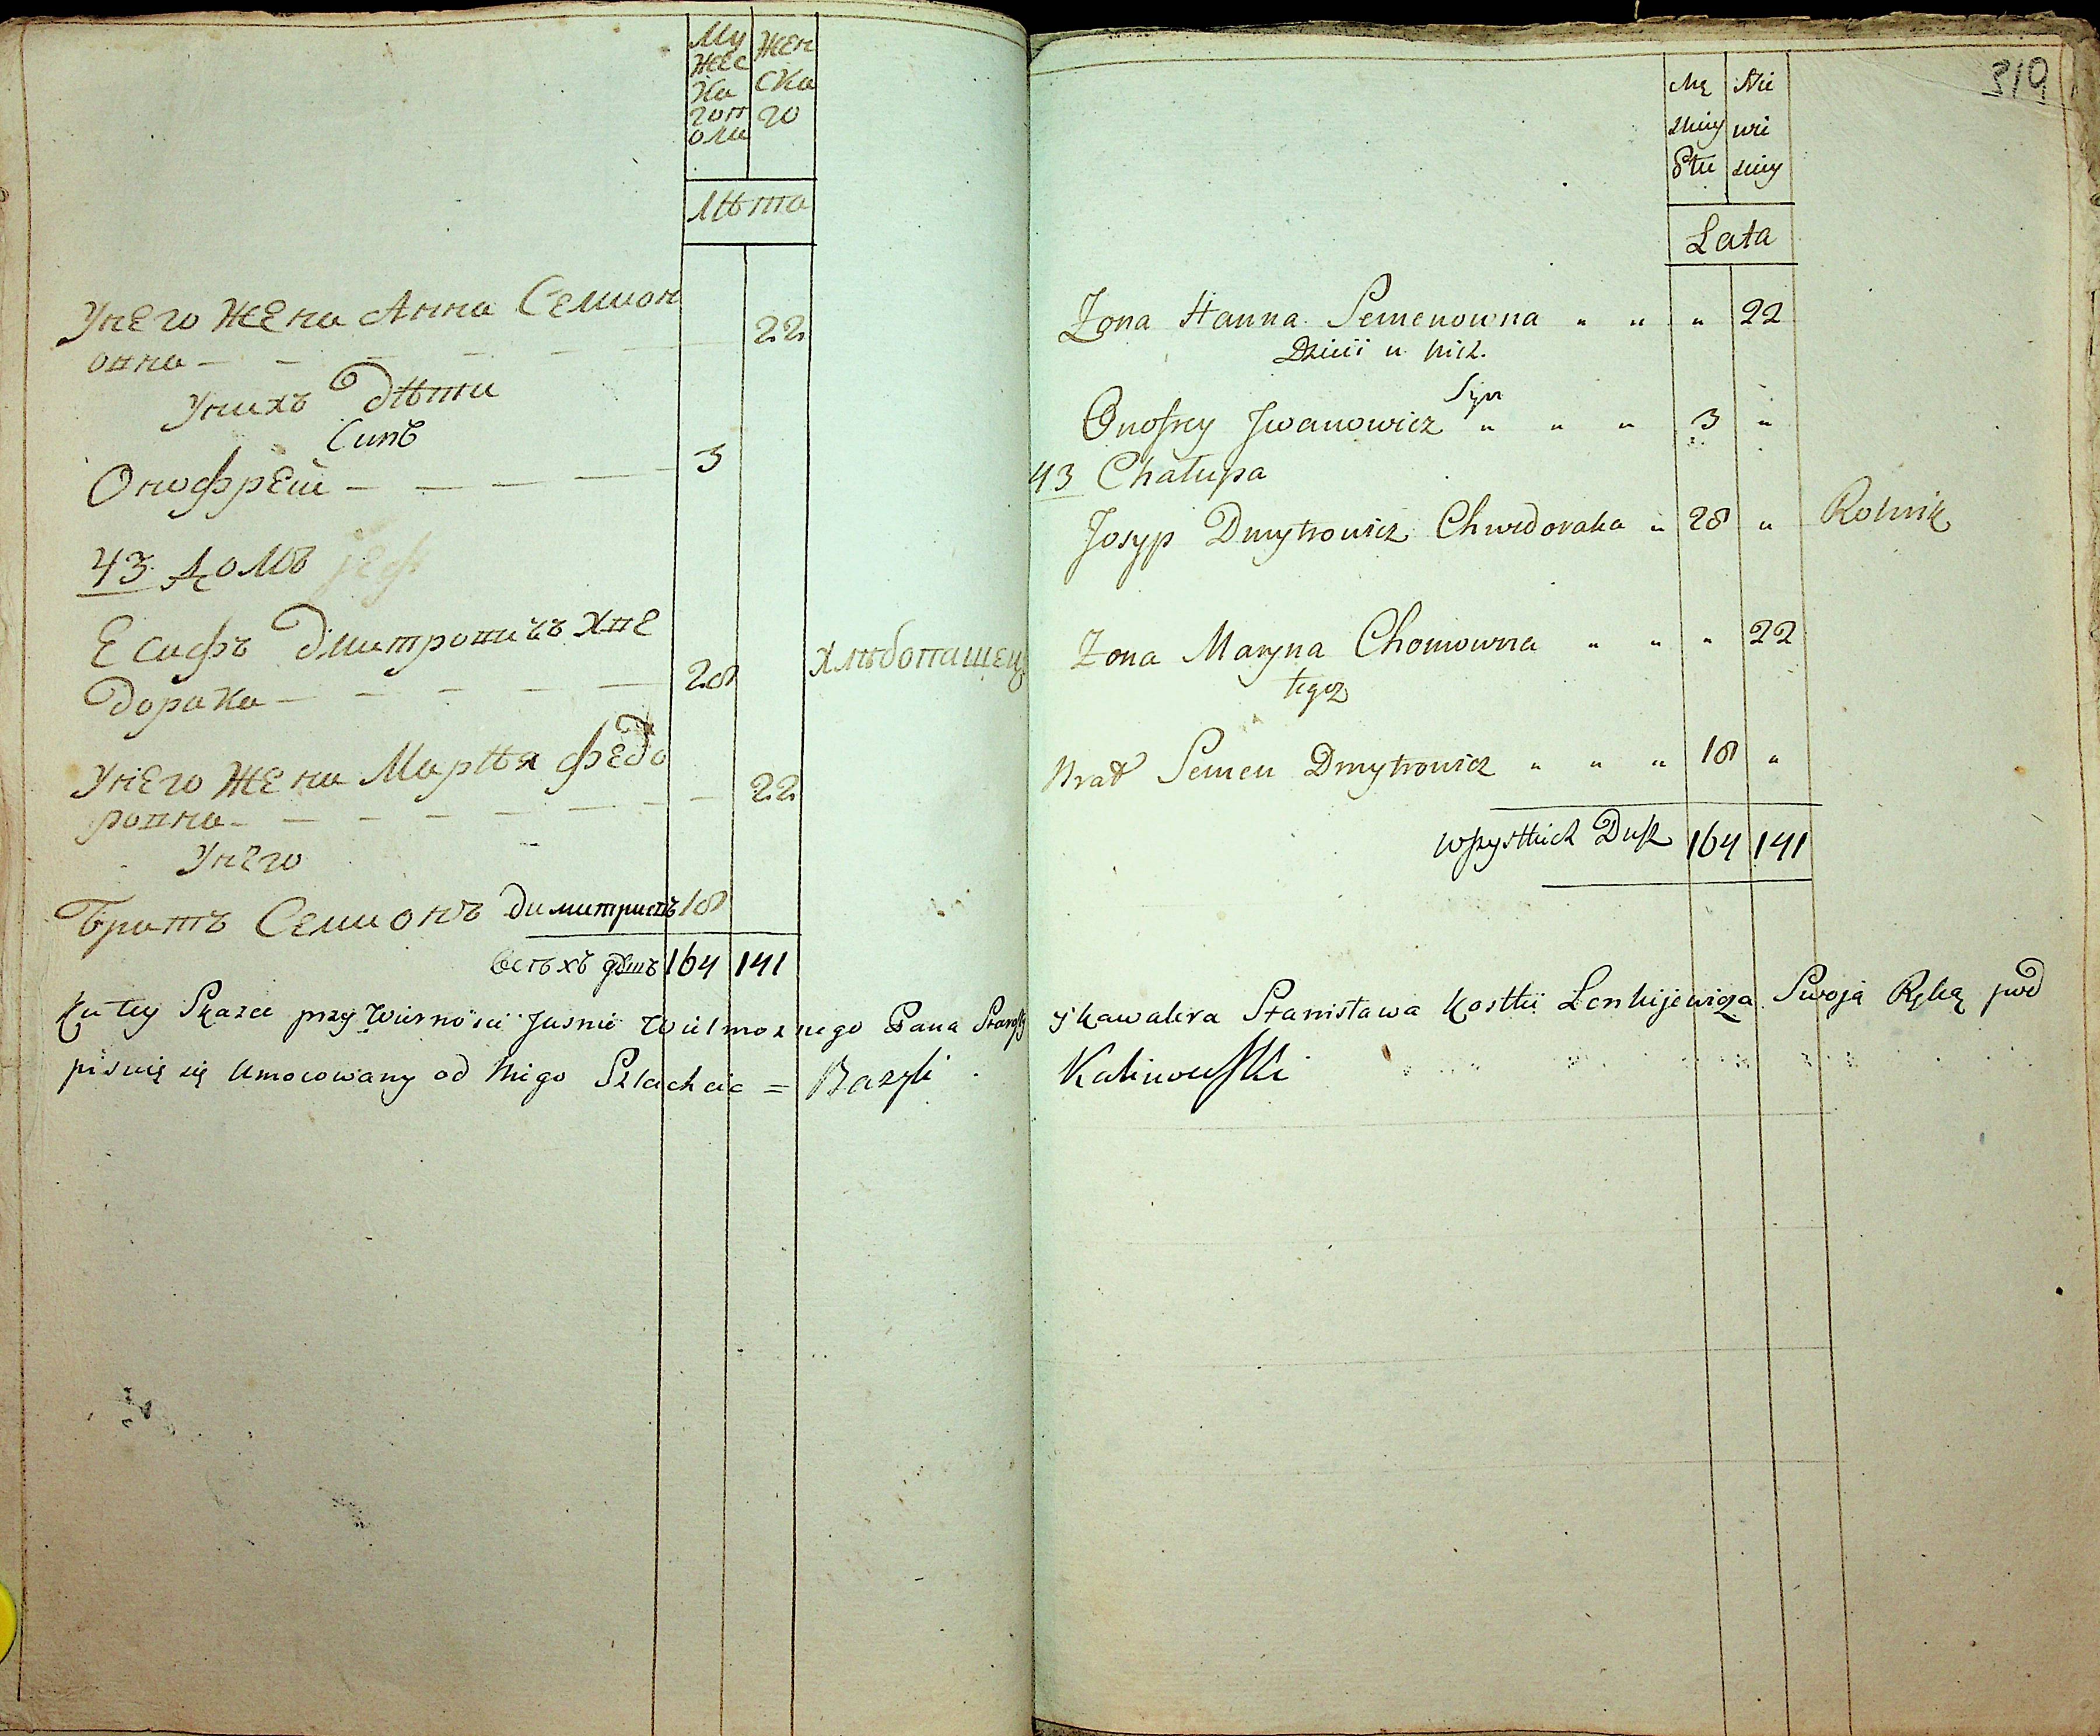 Му Жен
жес ска
ка го
гопп
оли
Лѣта
Унего жена Анна Семион
овна — — — — — — 22
Унихъ дѣти
Синъ
Онофрей — — — — 3
43 Домъ
Есифъ Дмитровичъ Хве
дорака — — — — — 28 хлѣбопашецъ
Унего жена Марѣя федо
ровна — — — — — — — 22
Унего
Братъ Семионъ димитриевъ 18
всѣхъ душъ 164 141
319
Mę Nie
zkiey wie
Płci sciey
Lata
Żona Hanna Semenowna " " " 22
Dzieci u nich.
Syn
Onofrey Jwanowicz " " " 3 "
43 Chałupa
Josyp Dmytrowicz Chwedoraka " 28 " Rolnik
Żona Maryna Chomowna " " " 22
tegoz
Brat Semen Dmytrowicz " " " 18 "
Wszystkich Dusz 164 141
Ku tey Skazce przy Wierności Jasnie Wielmoznego Pana Starosty y kawalera Stanisława Kostki Lenkijewicza Swoją Ręką pod
pisuię się Umocowany od Niego Szlachcic = Bazyli Kalinowski